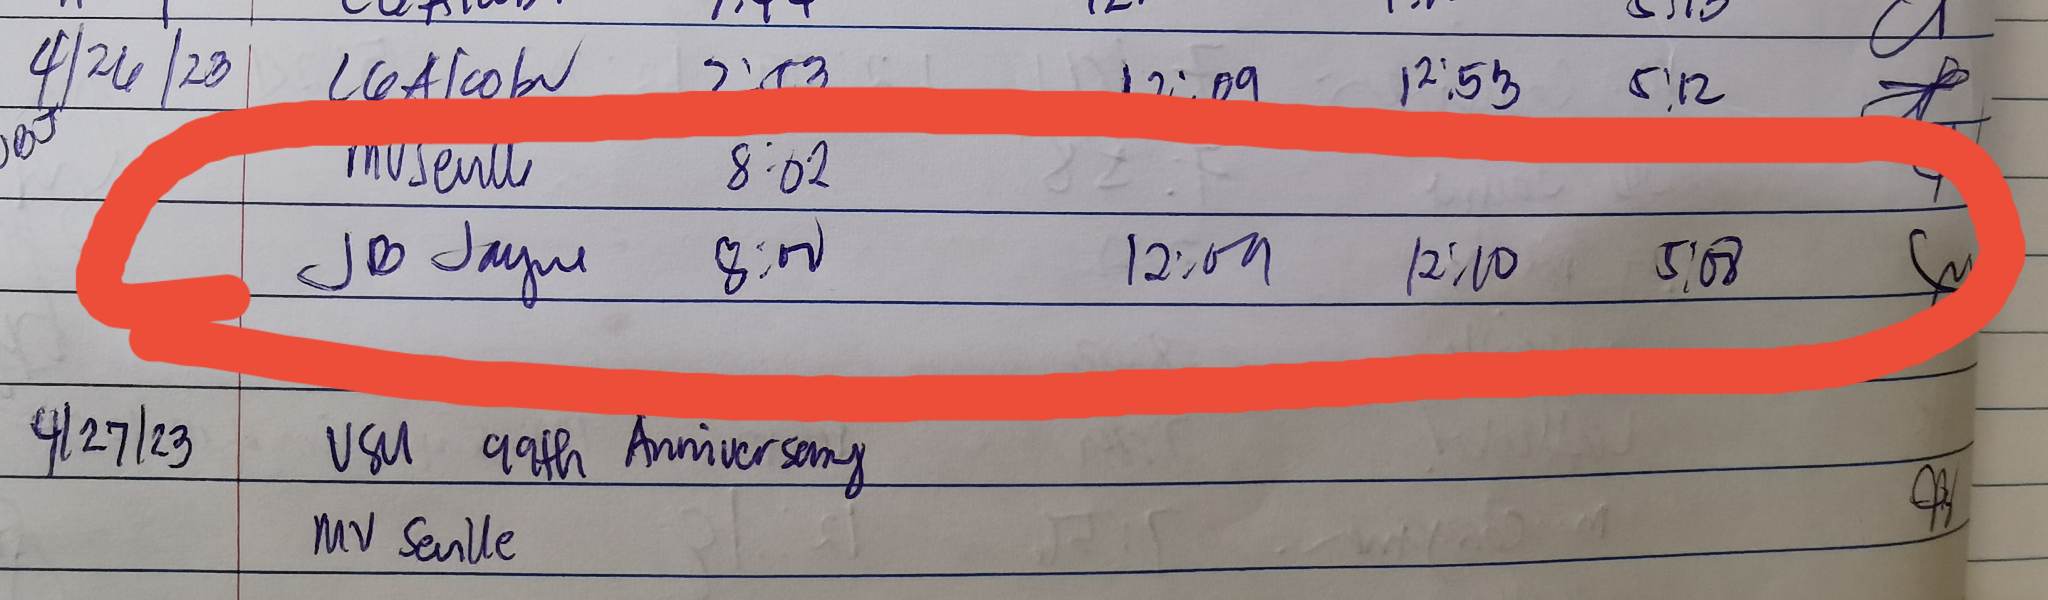 4/26/23 LGAlcober 7:53 12:09 12:53 5:12
MVSeville 8:02
JD Jayme 8:00 12:09 12:10 5:08
4/27/23 VSU 99th Anniversary
MV Seville